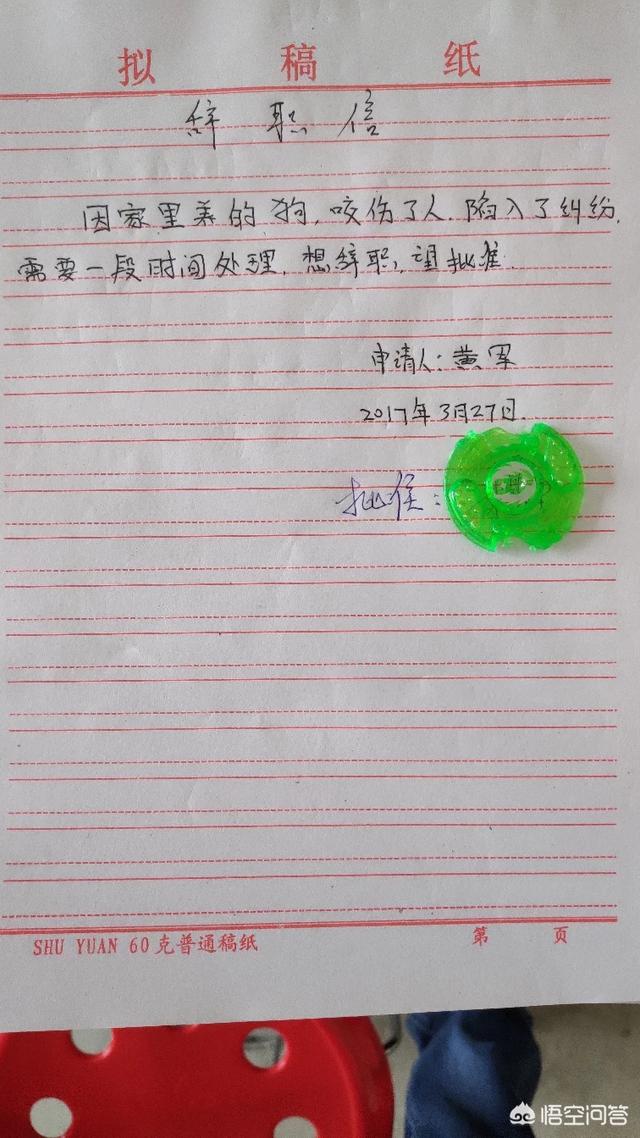 拟稿纸
辞职信
因家里养的狗,咬伤了人.陷入了纠纷,
需要一段时间处理,想辞职,望批准.
申请人:黄军
2017年3月27日.
批准:
SHU YUAN 60克普通稿纸 第 页
悟空问答